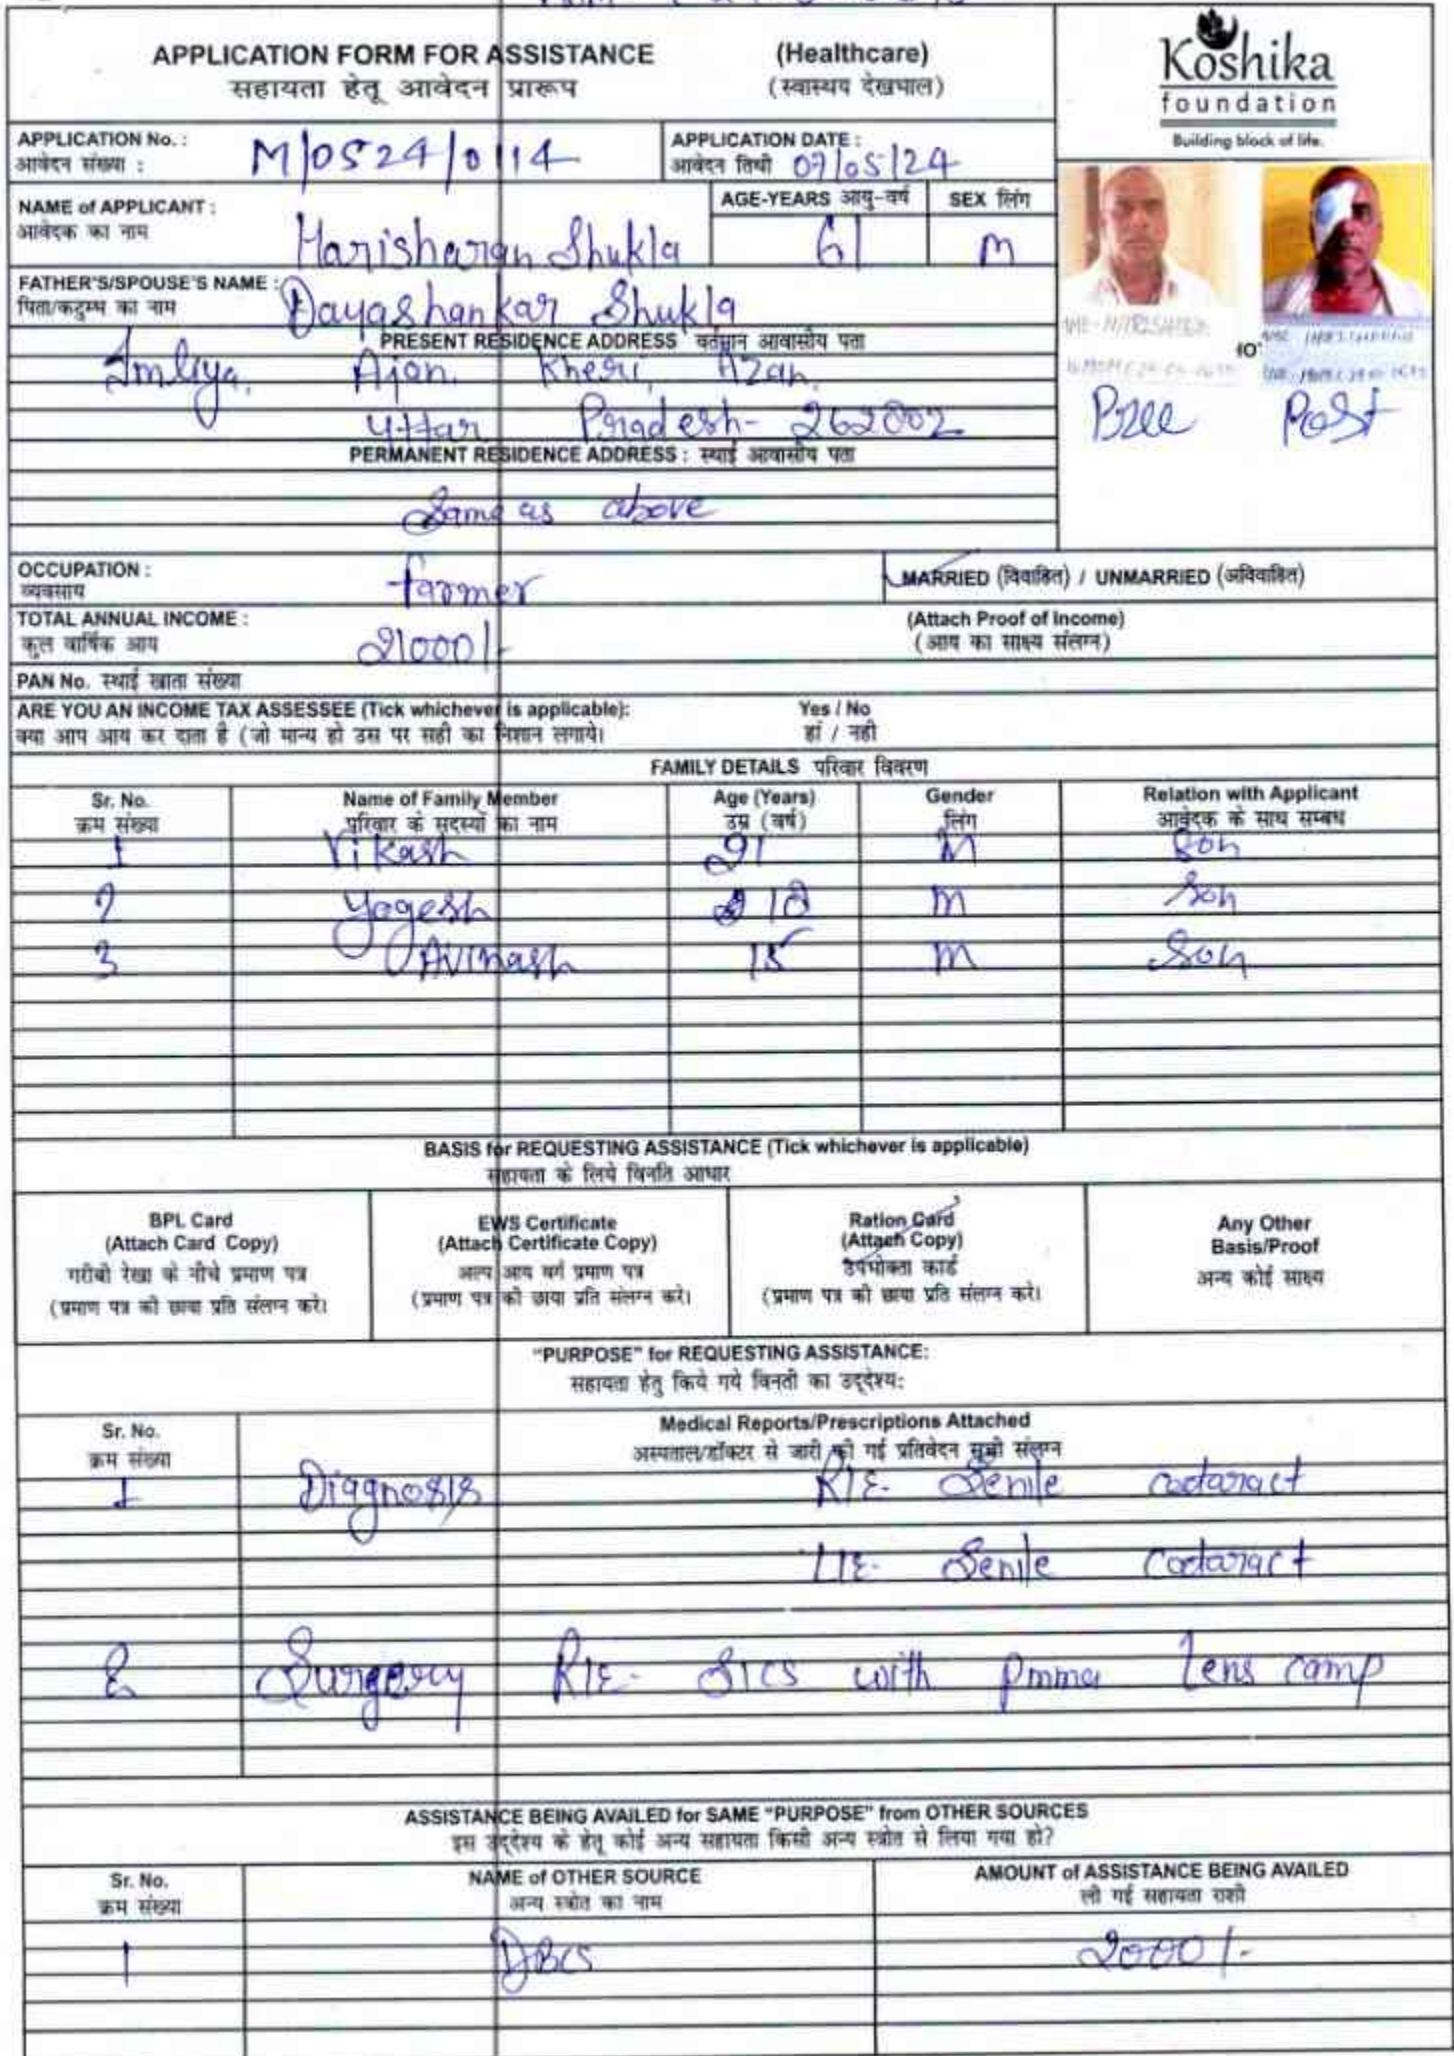 APPLICATION FORM FOR ASSISTANCE (Healthcare)
सहायता हेतू आवेदन प्रारूप (स्वास्थय देखभाल)
Koshika
foundation
Building block of life.
APPLICATION No. : M/0524/0114
आवेदन संख्या :
APPLICATION DATE :
आवेदन तिथी 07/05/24
NAME of APPLICANT :
आवेदक का नाम
Harisharan Shukla
AGE-YEARS आयु-वर्ष
61
SEX लिंग
M
FATHER'S/SPOUSE'S NAME :
पिता/कटुम्ब का नाम
Dayashankar Shukla
PRESENT RESIDENCE ADDRESS वर्तमान आवासीय पता
Imliya, Ajan, Kheri, Azan,
Uttar Pradesh- 262802
Pree Post
PERMANENT RESIDENCE ADDRESS : स्थाई आवासीय पता
Same as above
OCCUPATION :
व्यवसाय
farmer
MARRIED (विवाहित) / UNMARRIED (अविवाहित)
TOTAL ANNUAL INCOME :
कुल वार्षिक आय
21000/-
(Attach Proof of Income)
(आय का साक्ष्य संलग्न)
PAN No. स्थाई खाता संख्या
ARE YOU AN INCOME TAX ASSESSEE (Tick whichever is applicable): Yes / No
क्या आप आय कर दाता है (जो मान्य हो उस पर सही का निशान लगाये। हां / नही
FAMILY DETAILS परिवार विवरण
Sr. No. Name of Family Member Age (Years) Gender Relation with Applicant
क्रम संख्या परिवार के सदस्यों का नाम उम्र (वर्ष) लिंग आवेदक के साथ सम्बध
1 Vikash 21 M Son
2 Yogesh 18 M Son
3 Avinash 15 M Son
BASIS for REQUESTING ASSISTANCE (Tick whichever is applicable)
सहायता के लिये विनति आधार
BPL Card
(Attach Card Copy)
गरीबी रेखा के नीचे प्रमाण पत्र
(प्रमाण पत्र की छाया प्रति संलग्न करे।
EWS Certificate
(Attach Certificate Copy)
अल्प आय वर्ग प्रमाण पत्र
(प्रमाण पत्र की छाया प्रति संलग्न करे।
Ration Card
(Attach Copy)
उपभोक्ता कार्ड
(प्रमाण पत्र की छाया प्रति संलग्न करे।
Any Other
Basis/Proof
अन्य कोई साक्ष्य
"PURPOSE" for REQUESTING ASSISTANCE:
सहायता हेतु किये गये विनती का उद्देश्य:
Sr. No.
क्रम संख्या
Medical Reports/Prescriptions Attached
अस्पताल/डॉक्टर से जारी की गई प्रतिवेदन सूची संलग्न
1 Diagnosis R/E- Senile cataract
L/E- Senile cataract
2 Surgery R/E- SICS with pmma Lens camp
ASSISTANCE BEING AVAILED for SAME "PURPOSE" from OTHER SOURCES
इस उद्देश्य के हेतू कोई अन्य सहायता किसी अन्य स्त्रोत से लिया गया हो?
Sr. No. NAME of OTHER SOURCE AMOUNT of ASSISTANCE BEING AVAILED
क्रम संख्या अन्य स्त्रोत का नाम ली गई सहायता राशी
1 DBCS 2000/-